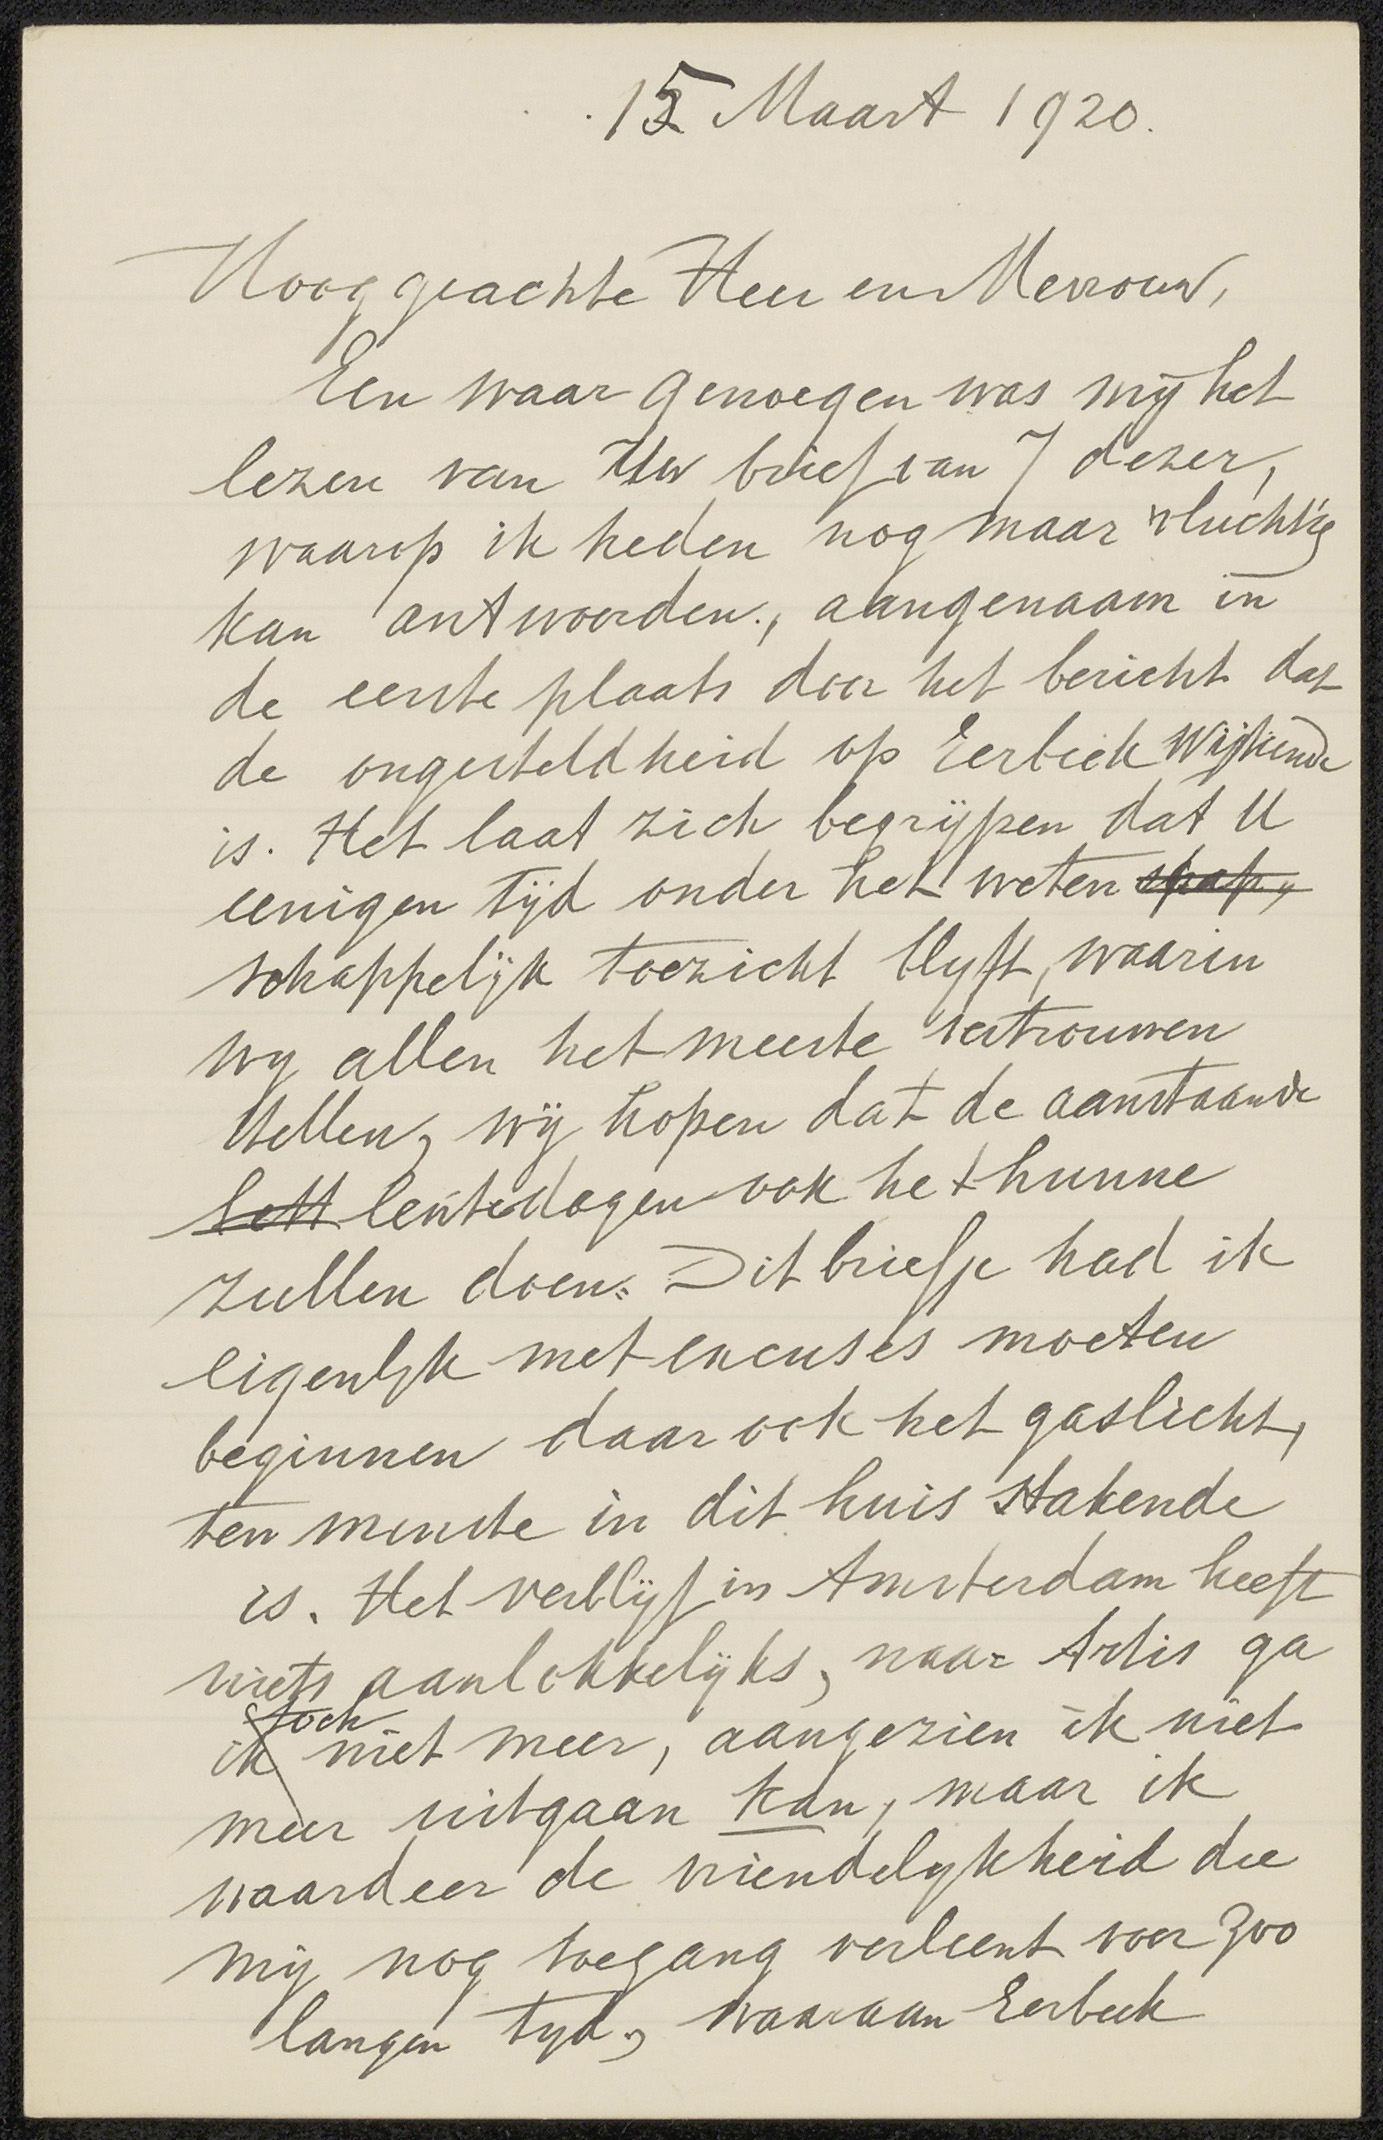 15 Maart 1920.
Hooggeachte Heer en Mevrouw,
Een waar genoegen was mij het
lezen van Uw brief van 7 dezer,
waarop ik heden nog maar vluchtig
kan antwoorden., aangenaam in
de eerste plaats door het bericht dat
de ongesteldheid op Eerbeek wijkende
is. Het laat zich begrijpen dat U
eenigen tijd onder het weten schap,
schappelijk toezicht blijft, waarin
wij allen het meeste vertrouwen
stellen, wij hopen dat de aanstaande
lentedagen ook het hunne
zullen doen. Dit briefje had ik
eigenlijk met excuses moeten
beginnen daar ook het gaslicht,
ten minste in dit huis stakende
is. Het verblijf in Amsterdam heeft
niets aanlokkelijks, naar Artis ga
toch
ik niet meer, aangezien ik niet
meer uitgaan kan, maar ik
waardeer de vriendelijkheid die
mij nog toegang verleent voor zoo
langen tijd, waaraan Eerbeek